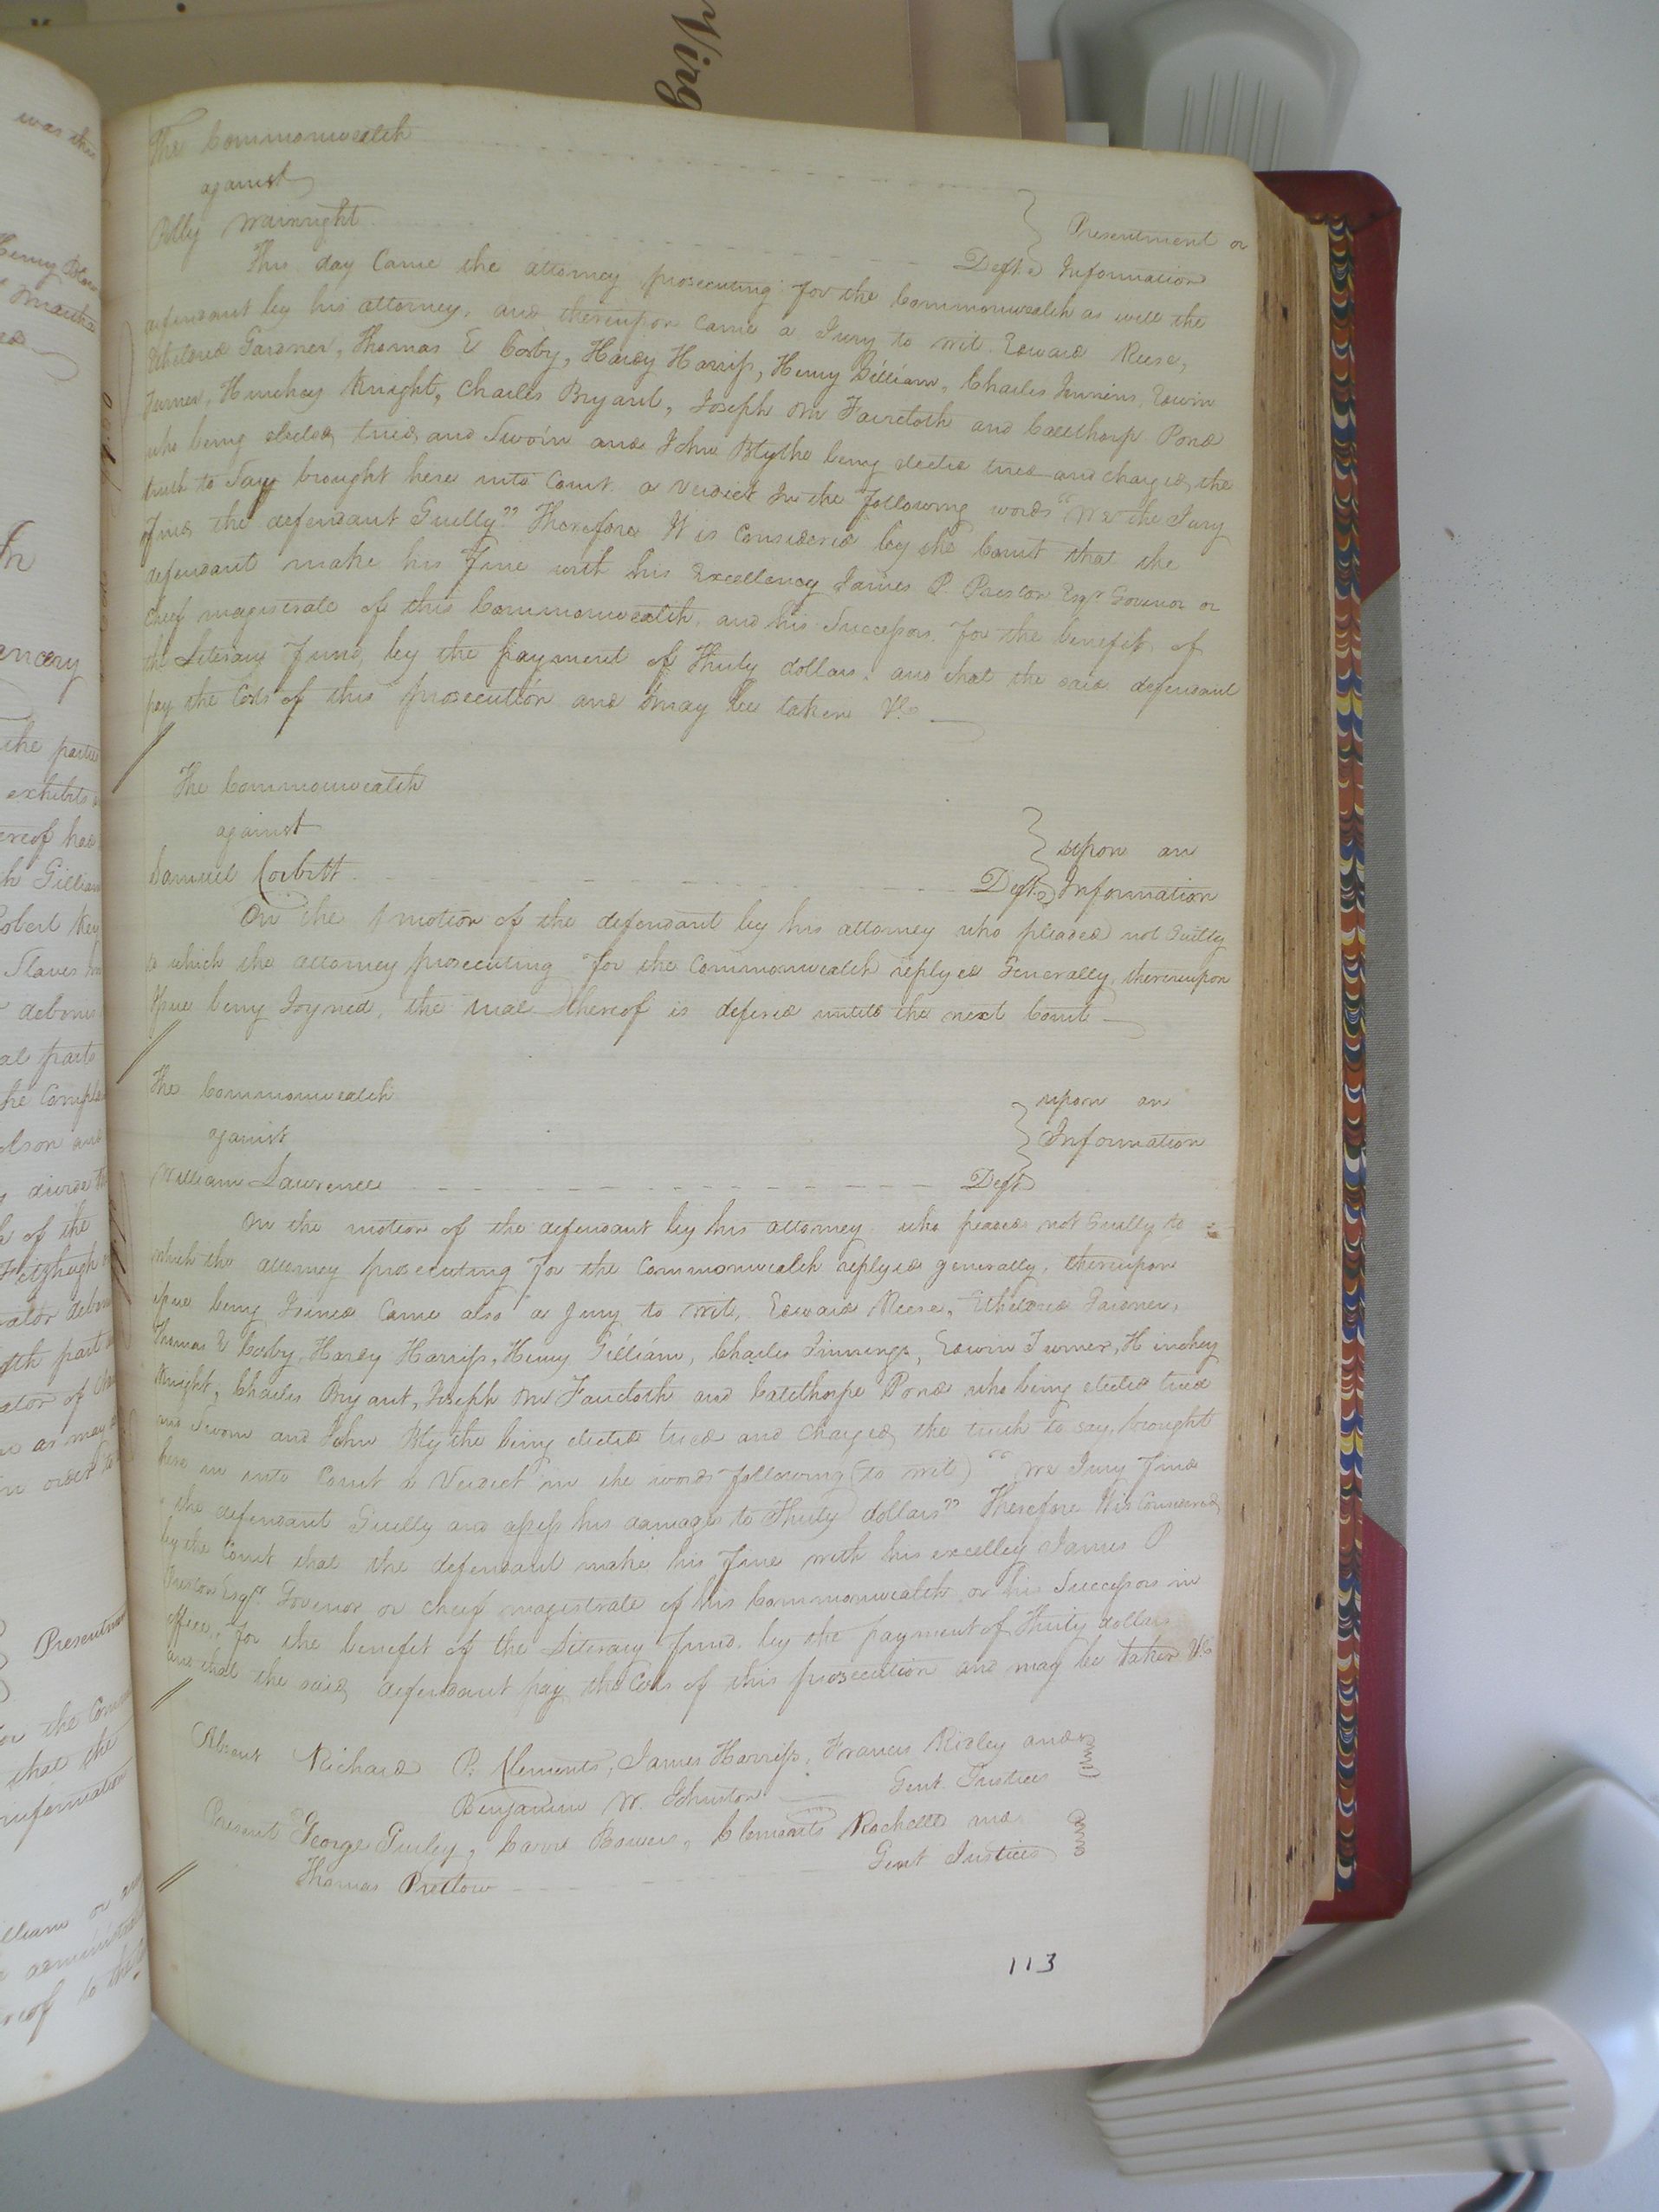 Virg
The Commonwealth
against
Polly Wainright Deft.
Presentment or
Information
This day Came the attorney prosecuting for the Commonwealth as well the
defendant by his attorney, and thereupon Came a Jury to wit. Edward Reese,
Etheldred Gardner, Thomas E Cosby, Hardy Harriss, Henry Gilliam, Charles Jinnins, Edwin
Turner, Hinchey Knight, Charles Bryant, Joseph M Faircloth and Callthorp Pond
who being elected, tried, and Sworn and John Blythe being elected tried and charged, the
truth to Say brought here into Court a Verdict In the following words "We the Jury
find the defendant Guilly" Therefore It is Considered by the Court that the
defendant make his Fine with his Excellency James P. Preston Esqr Govenor or
Cheef magistrate of this Commonwealth, and his Successors, for the benefit of
the Literary Fund, by the payment of Thirty dollars, and that the said defendant
pay the Costs of this prosecution and may be taken &c
The Commonwealth
against
Samuel Corbitt Deft.
upon an
Information
On the motion of the defendant by his attorney who pleaded not Guilty
to which the attorney prosecuting for the Commonwealth replyed Generally, thereupon
Issue being Joyned, the trial thereof is defered untill the next Court
The Commonwealth
against
William Lawrence Deft
upon an
Information
On the motion of the defendant by his attorney who pleaded not Guilly to
which the attorney prosecuting for the Commonwealth replyed generally, thereupon
issue being Joined Came also a Jury to wit, Edward Reese, Etheldred Gardner,
Thomas E Cosby, Hardy Harriss, Henry Gilliam, Charles Jinnings, Edwin Turner, Hinchey
Knight, Charles Bryant, Joseph M Faircloth and Callthorpe Pond who being elected tried
and Sworn and John Blythe being elected tried and charged, the truth to say, brought
here in into Court a Verdict in the words following (to wit) "We Jury find
the defendant Guilly and assess his damages to Thirty dollars" Therefore It is Considered
by the Court that the defendant make his Fine with his excelley James P
Preston Esqr. Govenor or cheef magistrate of this Commonwealth or his Successors in
office, for the benefit of the Literary Fund, by the payment of Thirty dollars
and that the said, defendant pay the Costs of this prosecution and may be taken &c
Absent Richard P. Clements, James Harriss, Francis Ridley and
Benjamin W. Johnston Gent. Justices
Present George Gurley, Carr Bowers, Clements Rochelle and
Thomas Pretlow Gent Justices
113